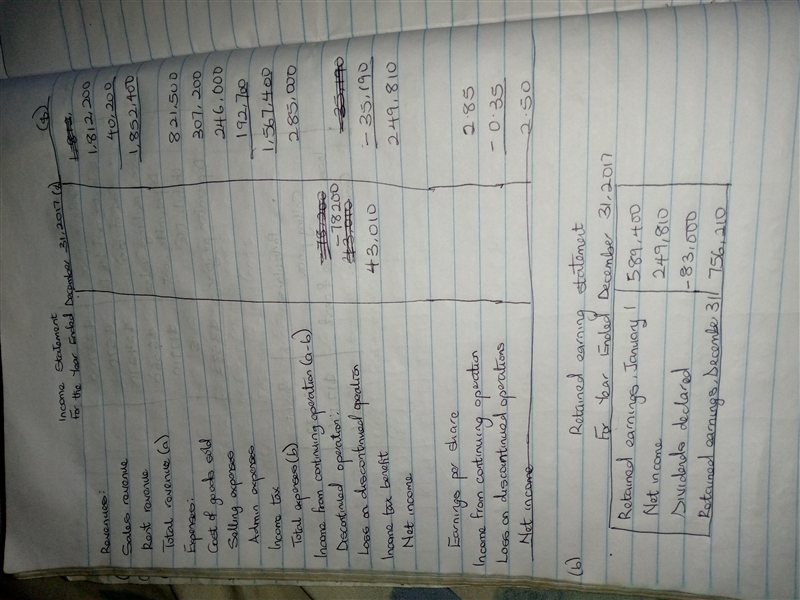 Income Statement
For the Year Ended December 31, 2017 ($) ($)
Revenues:
Sales revenue 1,812,200
Rent revenue 40,200
Total revenue (a) 1,852,400
Expenses:
Cost of goods sold 821,500
Selling expenses 307,200
Admin expenses 246,000
Income tax 192,700
Total expenses (b) 1,567,400
Income from continuing operation (a-b) 285,000
Discontinued operation:
Loss on discontinued operation -78200
Income tax benefit 43,010 -35,190
Net income 249,810
Earnings per share
Income from continuing operation 2.85
Loss on discontinued operations -0.35
Net income 2.50
(b) Retained earning statement
For Year Ended December 31, 2017
Retained earnings, January 1 589,400
Net income 249,810
Dividends declared -83,000
Retained earnings, December 31 756,210